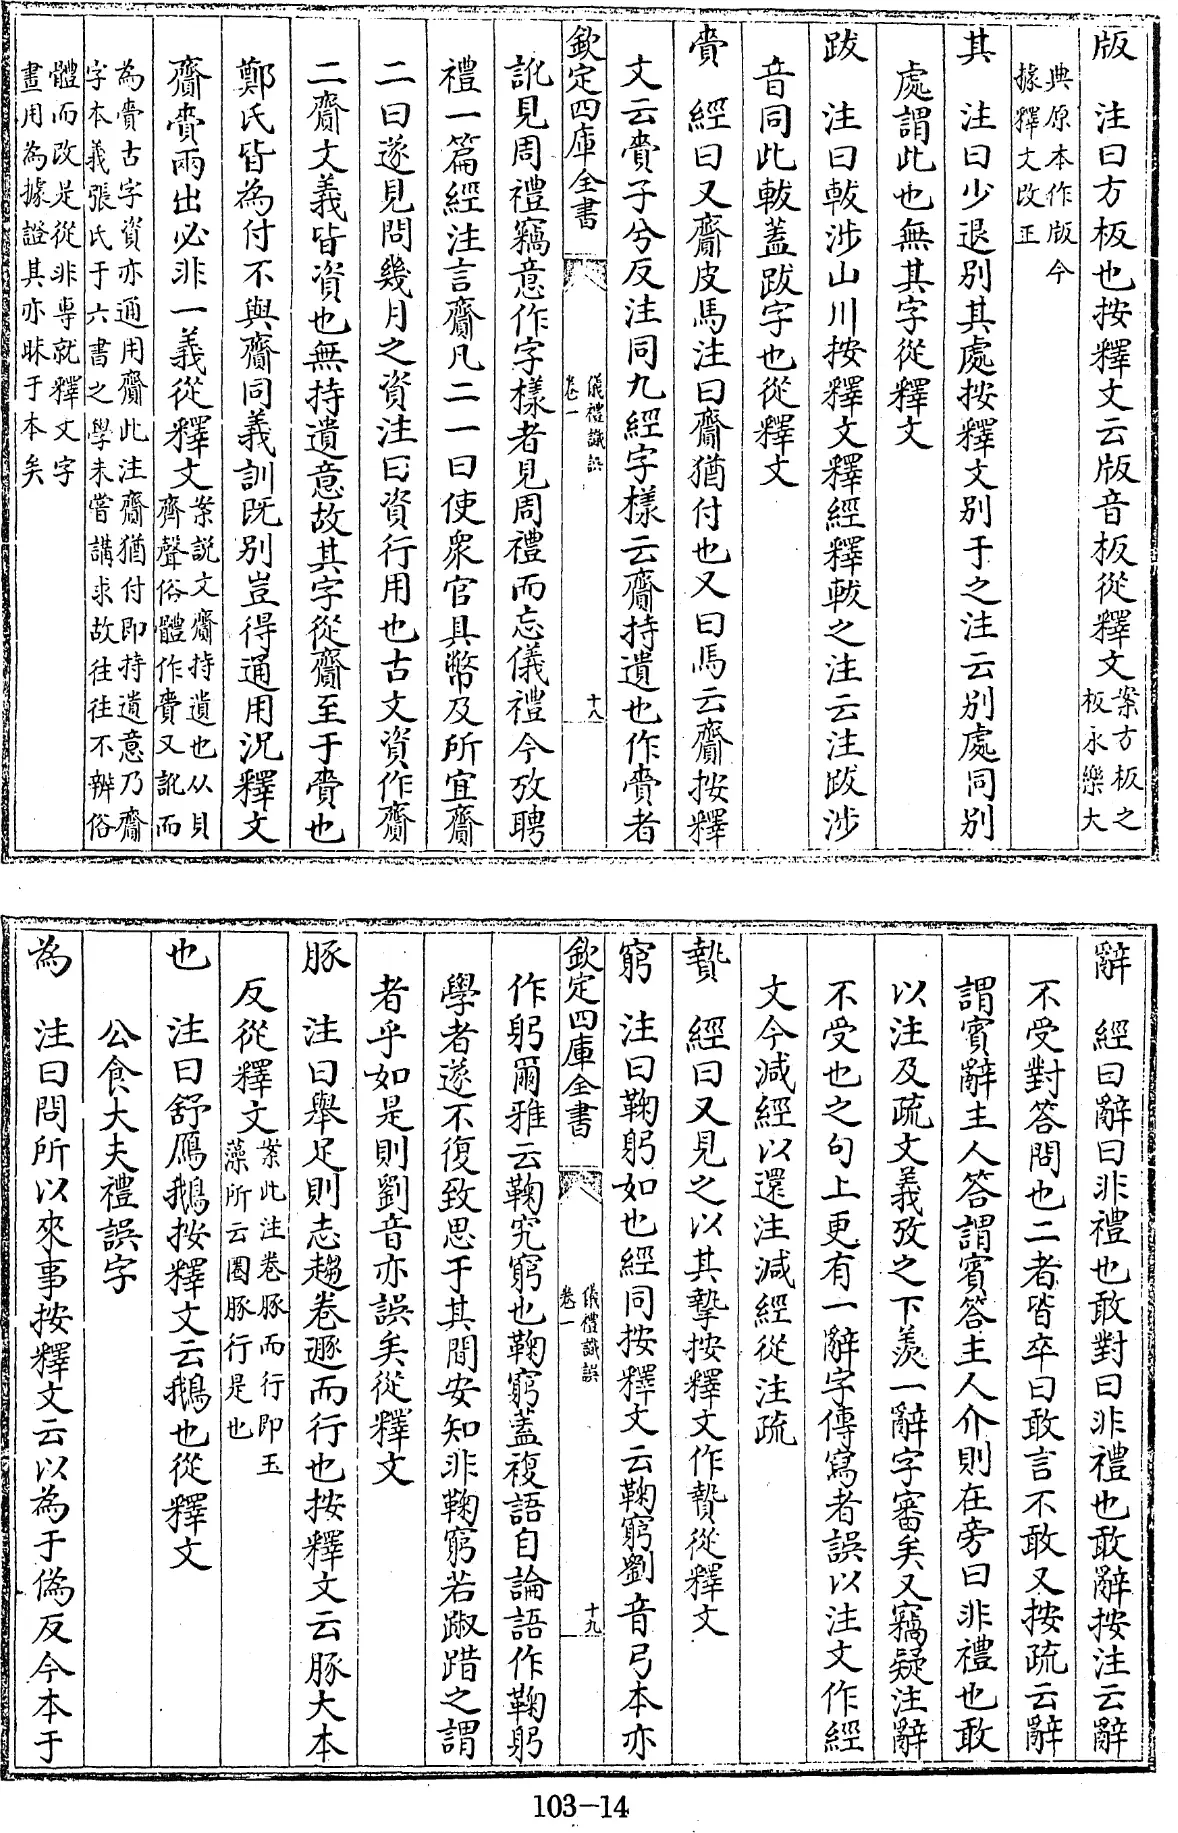 版　注曰方板也按釋文云版音板從釋文案方板之板永樂大
典原本作版今據釋文改正
其　注曰少退別其處按釋文別于之注云別處同別
處謂此也無其字從釋文
跋　注曰軷涉山川按釋文釋經釋軷之注云注跋涉
音同此軷蓋跋字也從釋文
賷　經曰又齎皮馬注曰齎猶付也又曰馬云齎按釋
文云賷子兮反注同九經字樣云齎持遺也作賷者
欽定四庫全書　儀禮識誤　卷一　十八
訛見周禮竊意作字樣者見周禮而忘儀禮今攷聘
禮一篇經注言齎凡二一曰使衆官具幣及所宜齎
二曰遂見問幾月之資注曰資行用也古文資作齎
二齎文義皆資也無持遺意故其字從齎至于賷也
鄭氏皆為付不與齎同義訓既別豈得通用況釋文
齎賷兩出必非一義從釋文案說文齎持遺也从貝齊聲俗體作賷又訛而
為賷古字資亦通用齎此注齎猶付即持遺意乃齎字本義張氏于六書之學未嘗講求故往往不辨俗
體而改是從非專就釋文字畫用為據證其亦昧于本矣
辭　經曰辭曰非禮也敢對曰非禮也敢辭按注云辭
不受對答問也二者皆卒曰敢言不敢又按疏云辭
謂賓辭主人答謂賓答主人介則在旁曰非禮也敢
以注及疏文義攷之下羨一辭字審矣又竊疑注辭
不受也之句上更有一辭字傳寫者誤以注文作經
文今減經以還注減經從注疏
贄　經曰又見之以其摯按釋文作贄從釋文
窮　注曰鞠躬如也經同按釋文云鞠窮劉音弓本亦
欽定四庫全書　儀禮識誤　卷一　十九
作躬爾雅云鞠究窮也鞠窮蓋複語自論語作鞠躬
學者遂不復致思于其間安知非鞠窮若踧踖之謂
者乎如是則劉音亦誤矣從釋文
豚　注曰舉足則志趨卷遯而行也按釋文云豚大本
反從釋文案此注卷豚而行即玉藻所云圈豚行是也
也　注曰舒鴈鵝按釋文云鵝也從釋文
公食大夫禮誤字
為　注曰問所以來事按釋文云以為于偽反今本于
103-14